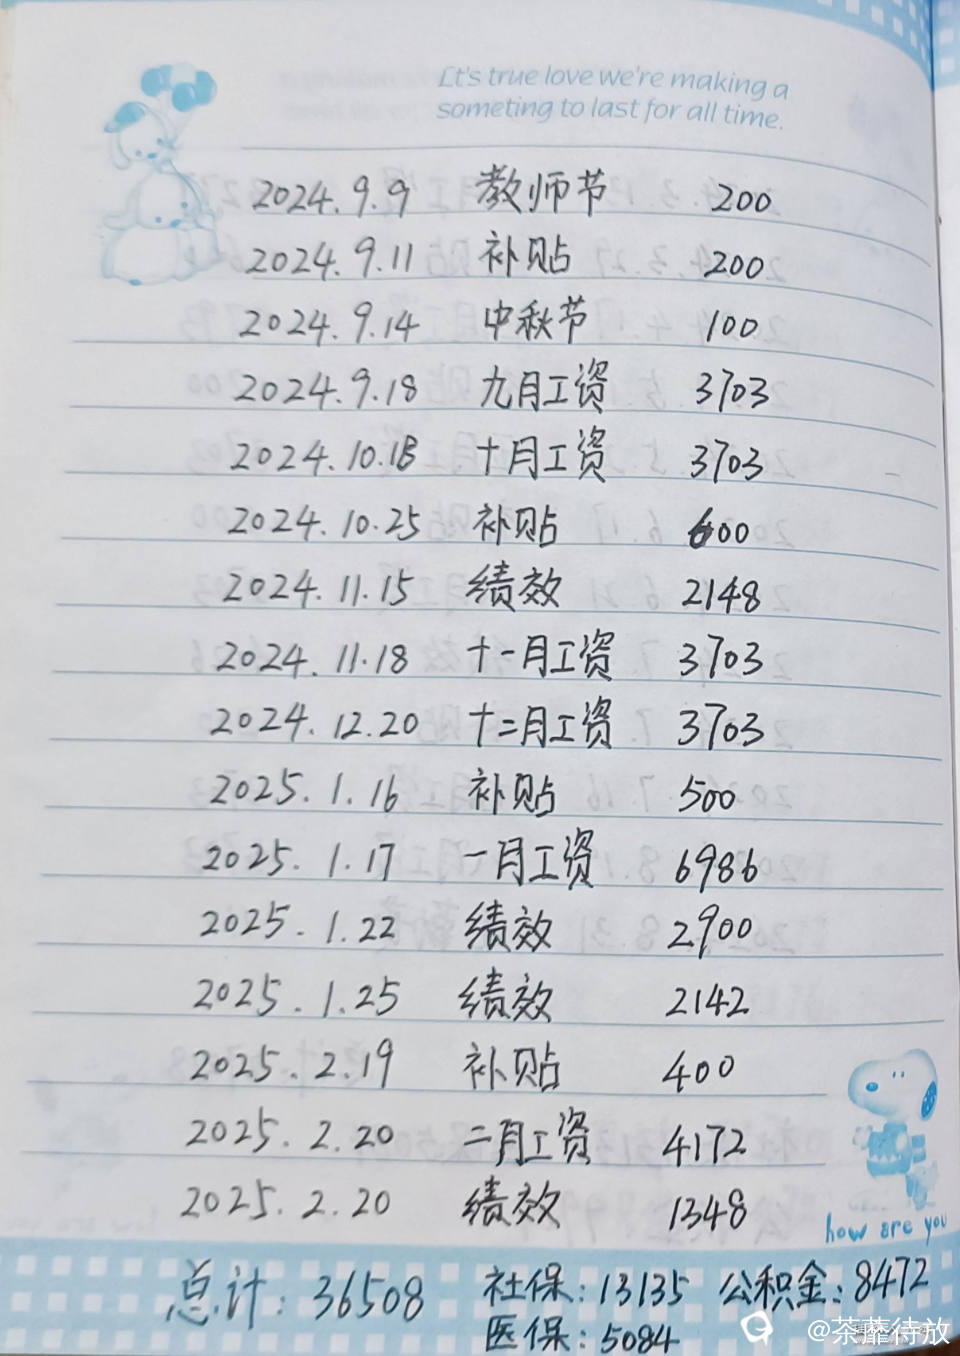 It's true love we're making a
someting to last for all time.
2024.9.9 教师节 200
2024.9.11 补贴 200
2024.9.14 中秋节 100
2024.9.18 九月工资 3703
2024.10.18 十月工资 3703
2024.10.25 补贴 600
2024.11.15 绩效 2148
2024.11.18 十一月工资 3703
2024.12.20 十二月工资 3703
2025.1.16 补贴 500
2025.1.17 一月工资 6986
2025.1.22 绩效 2900
2025.1.25 绩效 2142
2025.2.19 补贴 400
2025.2.20 二月工资 4172
2025.2.20 绩效 1348
how are you
总计:36508 社保:13135 公积金:8472
医保:5084
@荼蘼待放